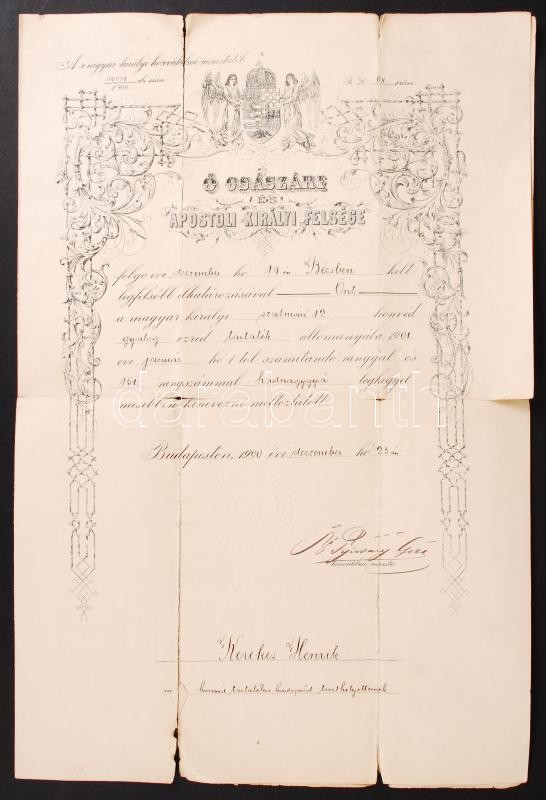 A magyar királyi honvédelmi ministertől
eln. szám
1900
68 szám
Ő CSÁSZÁRI
ÉS
APOSTOLI KIRÁLYI FELSÉGE
folyó évi deszember hó 19 én Bécsben kelt
legfelsőbb elhatározásával Önt
a magyar királyi szatmári 12 honvéd
gyalog ezred tartalék állományába 1901
évi január hó 1 től számítandó ranggal és
131 rangszámmal hadnagygyá legkegyel
mesebben kinevezni méltóztatott.
darabanth
Budapesten, 1900 évi deszember hó 23 án.
Br Fejérváry Géza
honvédelmi minister
Kerekes Henrik
m. honvéd tartalékos hadapród tiszthelyettesnek